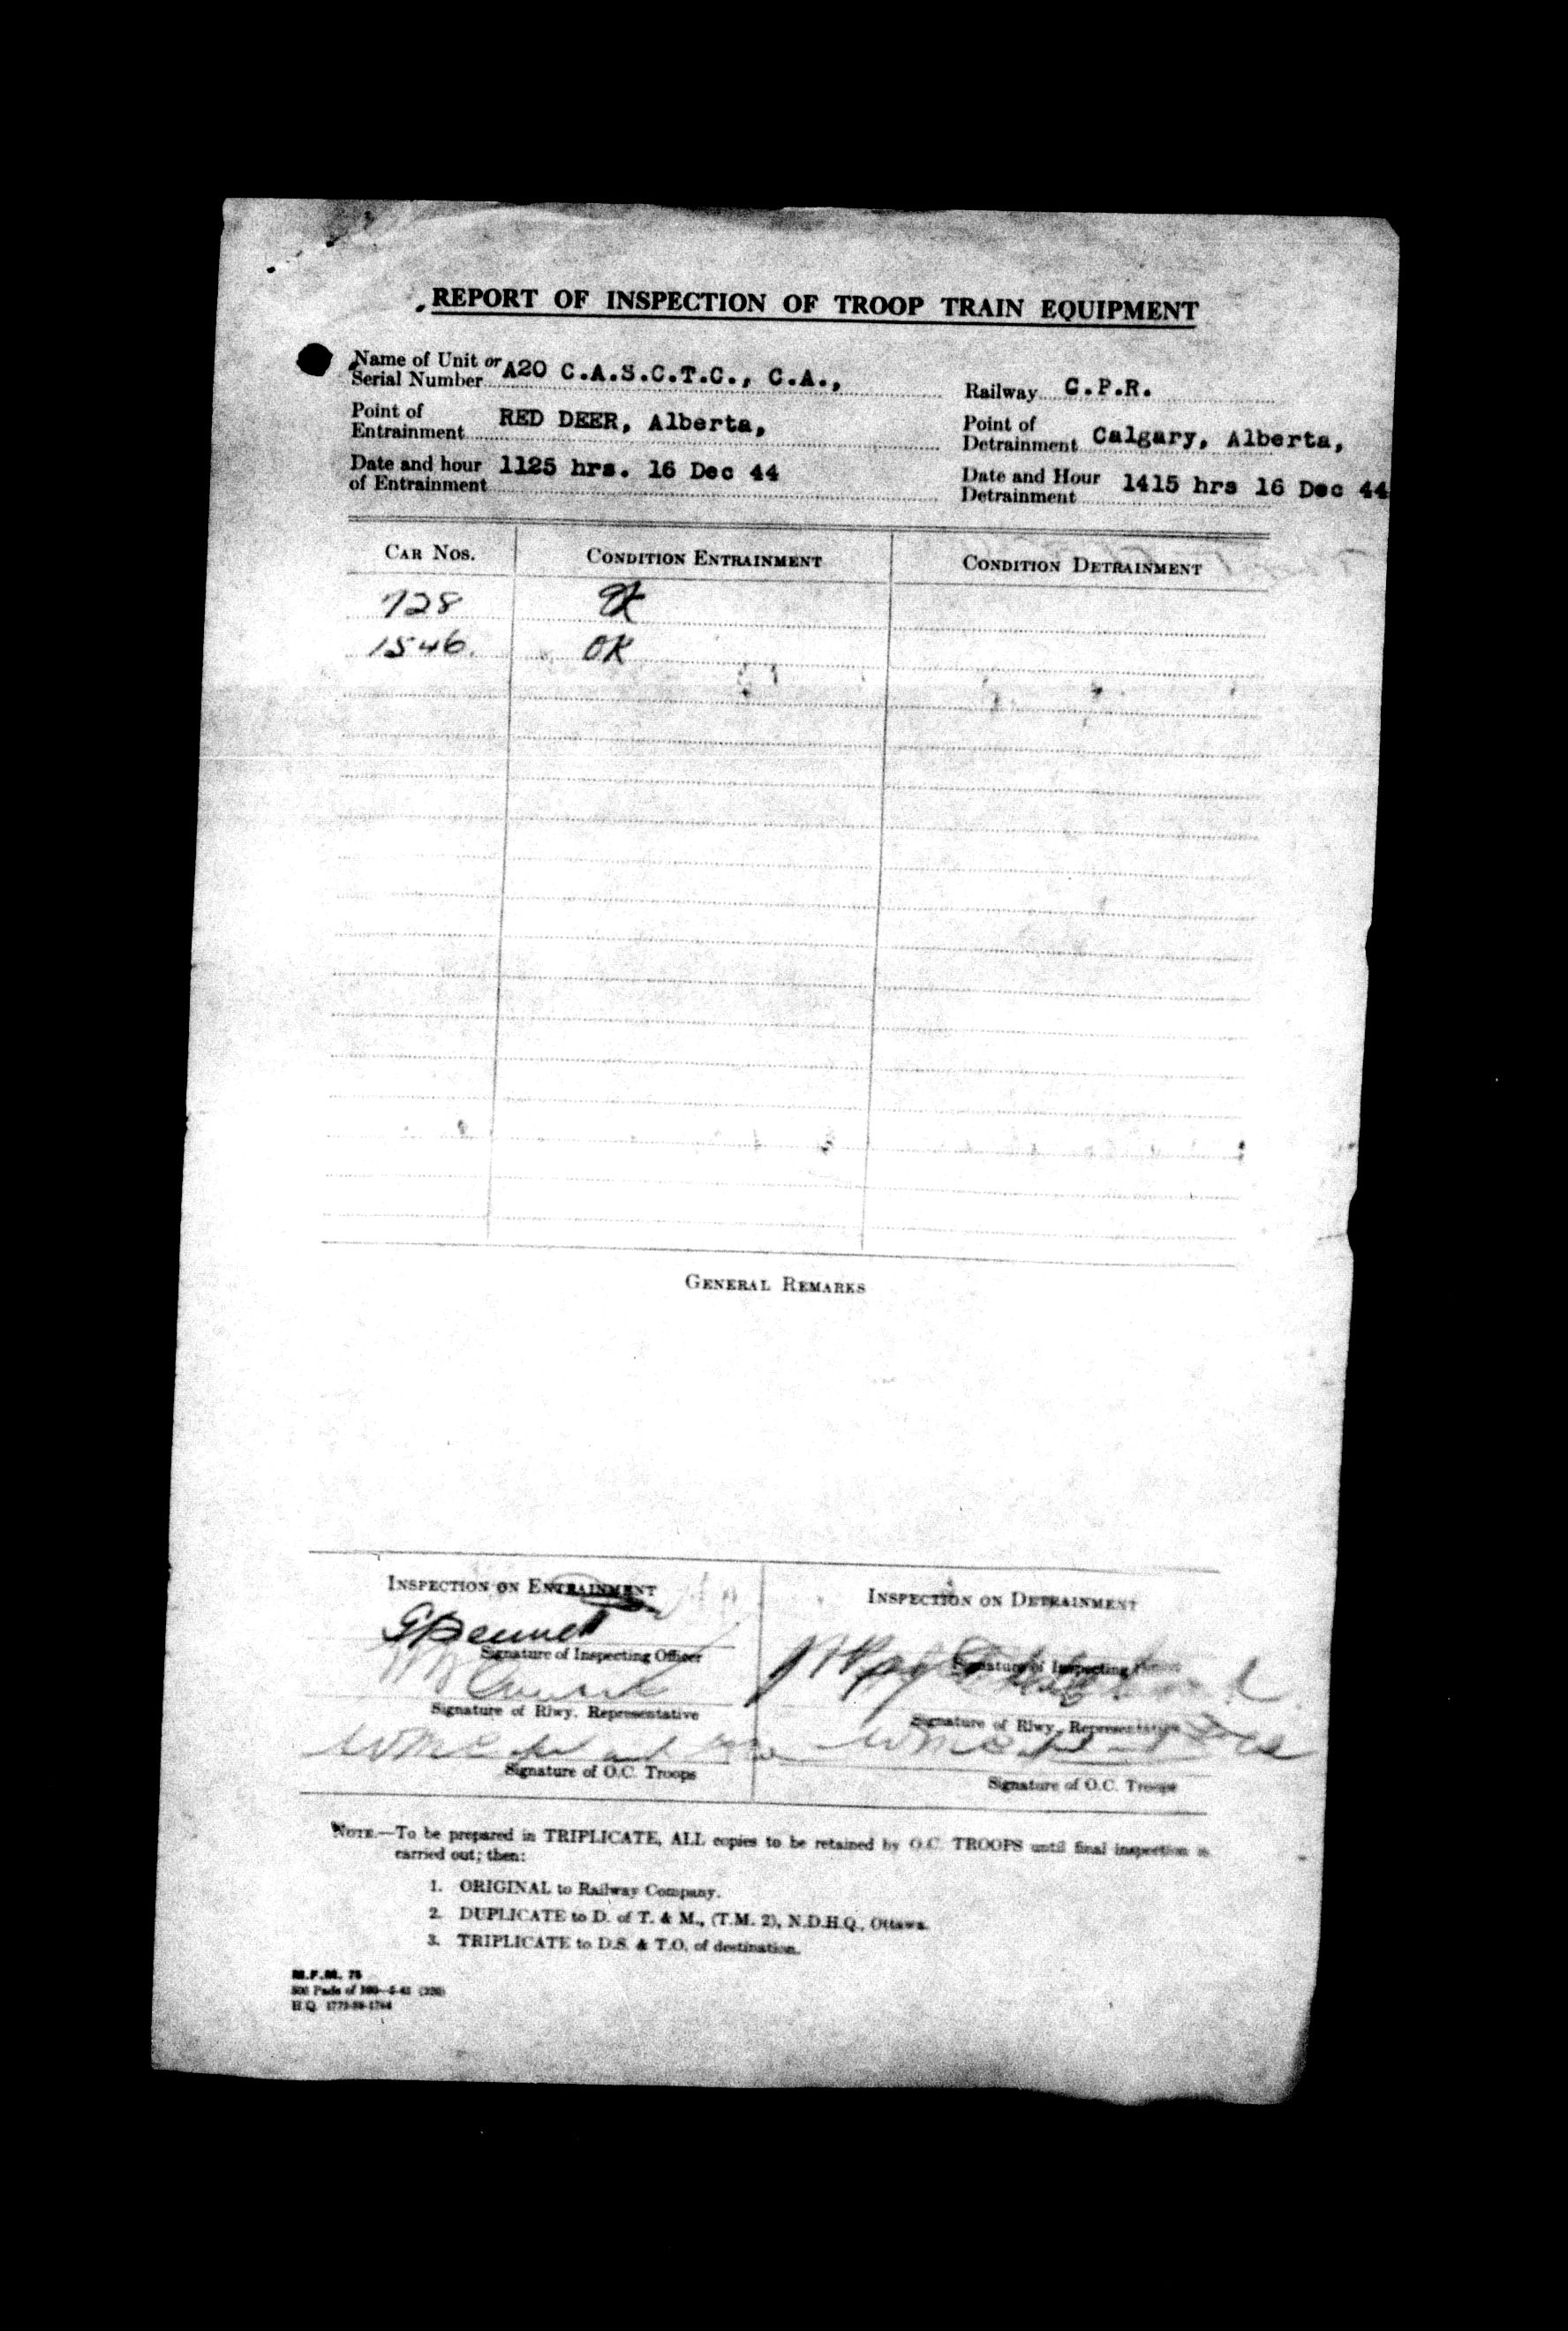 REPORT OF INSPECTION OF TROOP TRAIN EQUIPMENT
Name of Unit or
Serial Number A20 C.A.S.C.T.C., C.A.,
Railway C.P.R.
Point of
Entrainment RED DEER, Alberta,
Point of
Detrainment Calgary, Alberta,
Date and hour
of Entrainment 1125 hrs. 16 Dec 44
Date and Hour
Detrainment 1415 hrs 16 Dec 44
CAR NOS. CONDITION ENTRAINMENT CONDITION DETRAINMENT
728 OK
1546. OK
GENERAL REMARKS
INSPECTION ON ENTRAINMENT
Signature of Inspecting Officer
Signature of Rlwy. Representative
Signature of O.C. Troops
INSPECTION ON DETRAINMENT
Signature of Inspecting
Signature of Rlwy. Representative
Signature of O.C. Troops
NOTE.—To be prepared in TRIPLICATE, ALL copies to be retained by O.C. TROOPS until final inspection is
carried out; then:
1. ORIGINAL to Railway Company.
2. DUPLICATE to D. of T. & M., (T.M. 2), N.D.H.Q., Ottawa.
3. TRIPLICATE to D.S. & T.O. of destination.
M.F.M. 75
Pads of
H.Q.